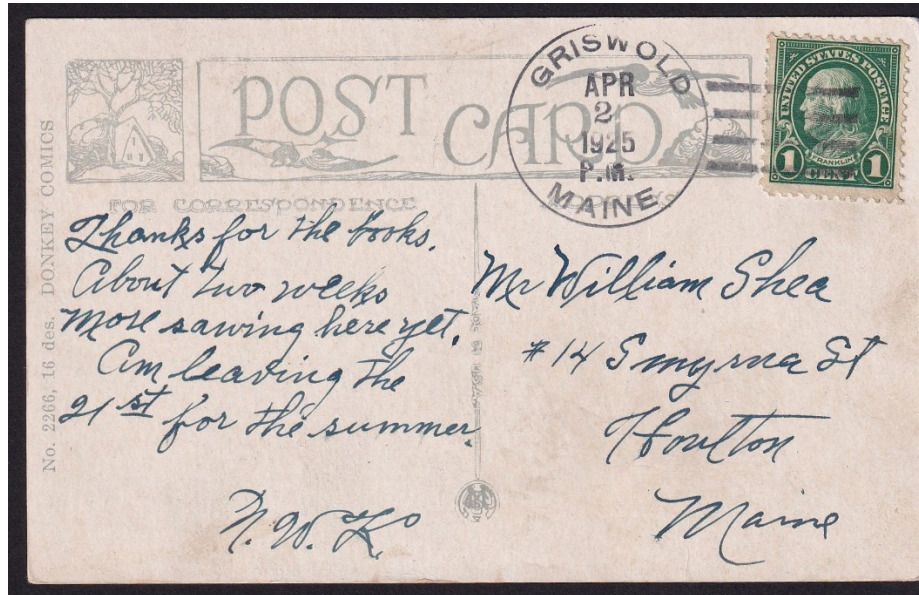 POST CARD
FOR CORRESPONDENCE
GRISWOLD
APR
2
1925
P.M.
MAINE
UNITED STATES POSTAGE
FRANKLIN
1 CENT 1
No. 2266, 16 des. DONKEY COMICS
Thanks for the books.
About two weeks
more sawing here yet.
Am leaving the
21st for the summer.
N. W. K.
Mr William Shea
#14 Smyrna St
Houlton
Maine